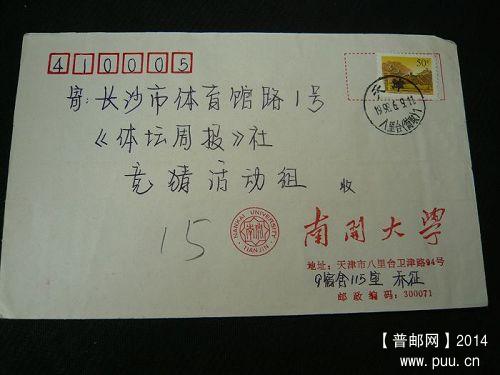 410005
50分
天津
1998.6.9.18
八里台(营收)1
寄:长沙市体育馆路1号
《体坛周报》社
竞猜活动组 收
15
NANKAI UNIVERSITY
南开
TIANJIN
南開大學
地址:天津市八里台卫津路94号
9宿舍115室 乔征
邮政编码:300071
【普邮网】2014
www.puu.cn